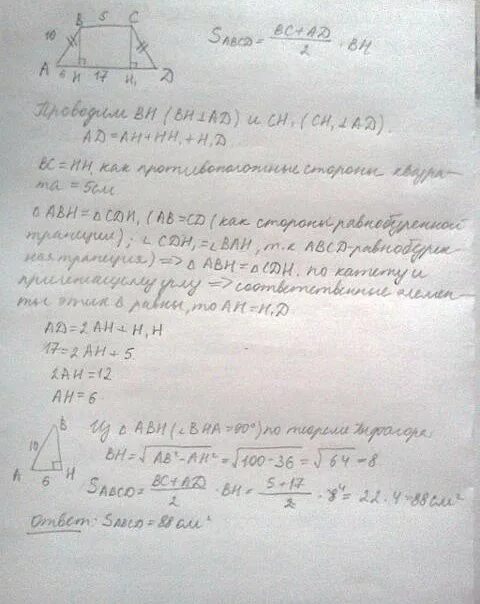 B 5 C
10
A 6 H 17 H₁ D
S_ABCD = (BC+AD)/2 · BH
Проводим BH (BH⊥AD) и CH₁ (CH₁⊥AD).
AD = AH + HH₁ + H₁D
BC = HH₁ как противоположные стороны квадра-
та = 5см
△ABH = △CDH₁ (AB=CD (как стороны равнобуренной
трапеции); ∠CDH₁ = ∠BAH, т.к ABCD-равнобурен-
ная трапеция) => △ABH = △CDH₁ по катету и
прилежащему углу => соответственные элемен-
ты этих △ равны, то AH = H₁D
AD = 2AH + H₁H
17 = 2AH + 5
2AH = 12
AH = 6
B
10
A 6 H
Из △ABH (∠BHA = 90°) по теореме Пифагора:
BH = √(AB² - AH²) = √(100 - 36) = √64 = 8
S_ABCD = (BC+AD)/2 · BH = (5+17)/2 · 8⁴ = 22 · 4 = 88см²
Ответ: S_ABCD = 88см²